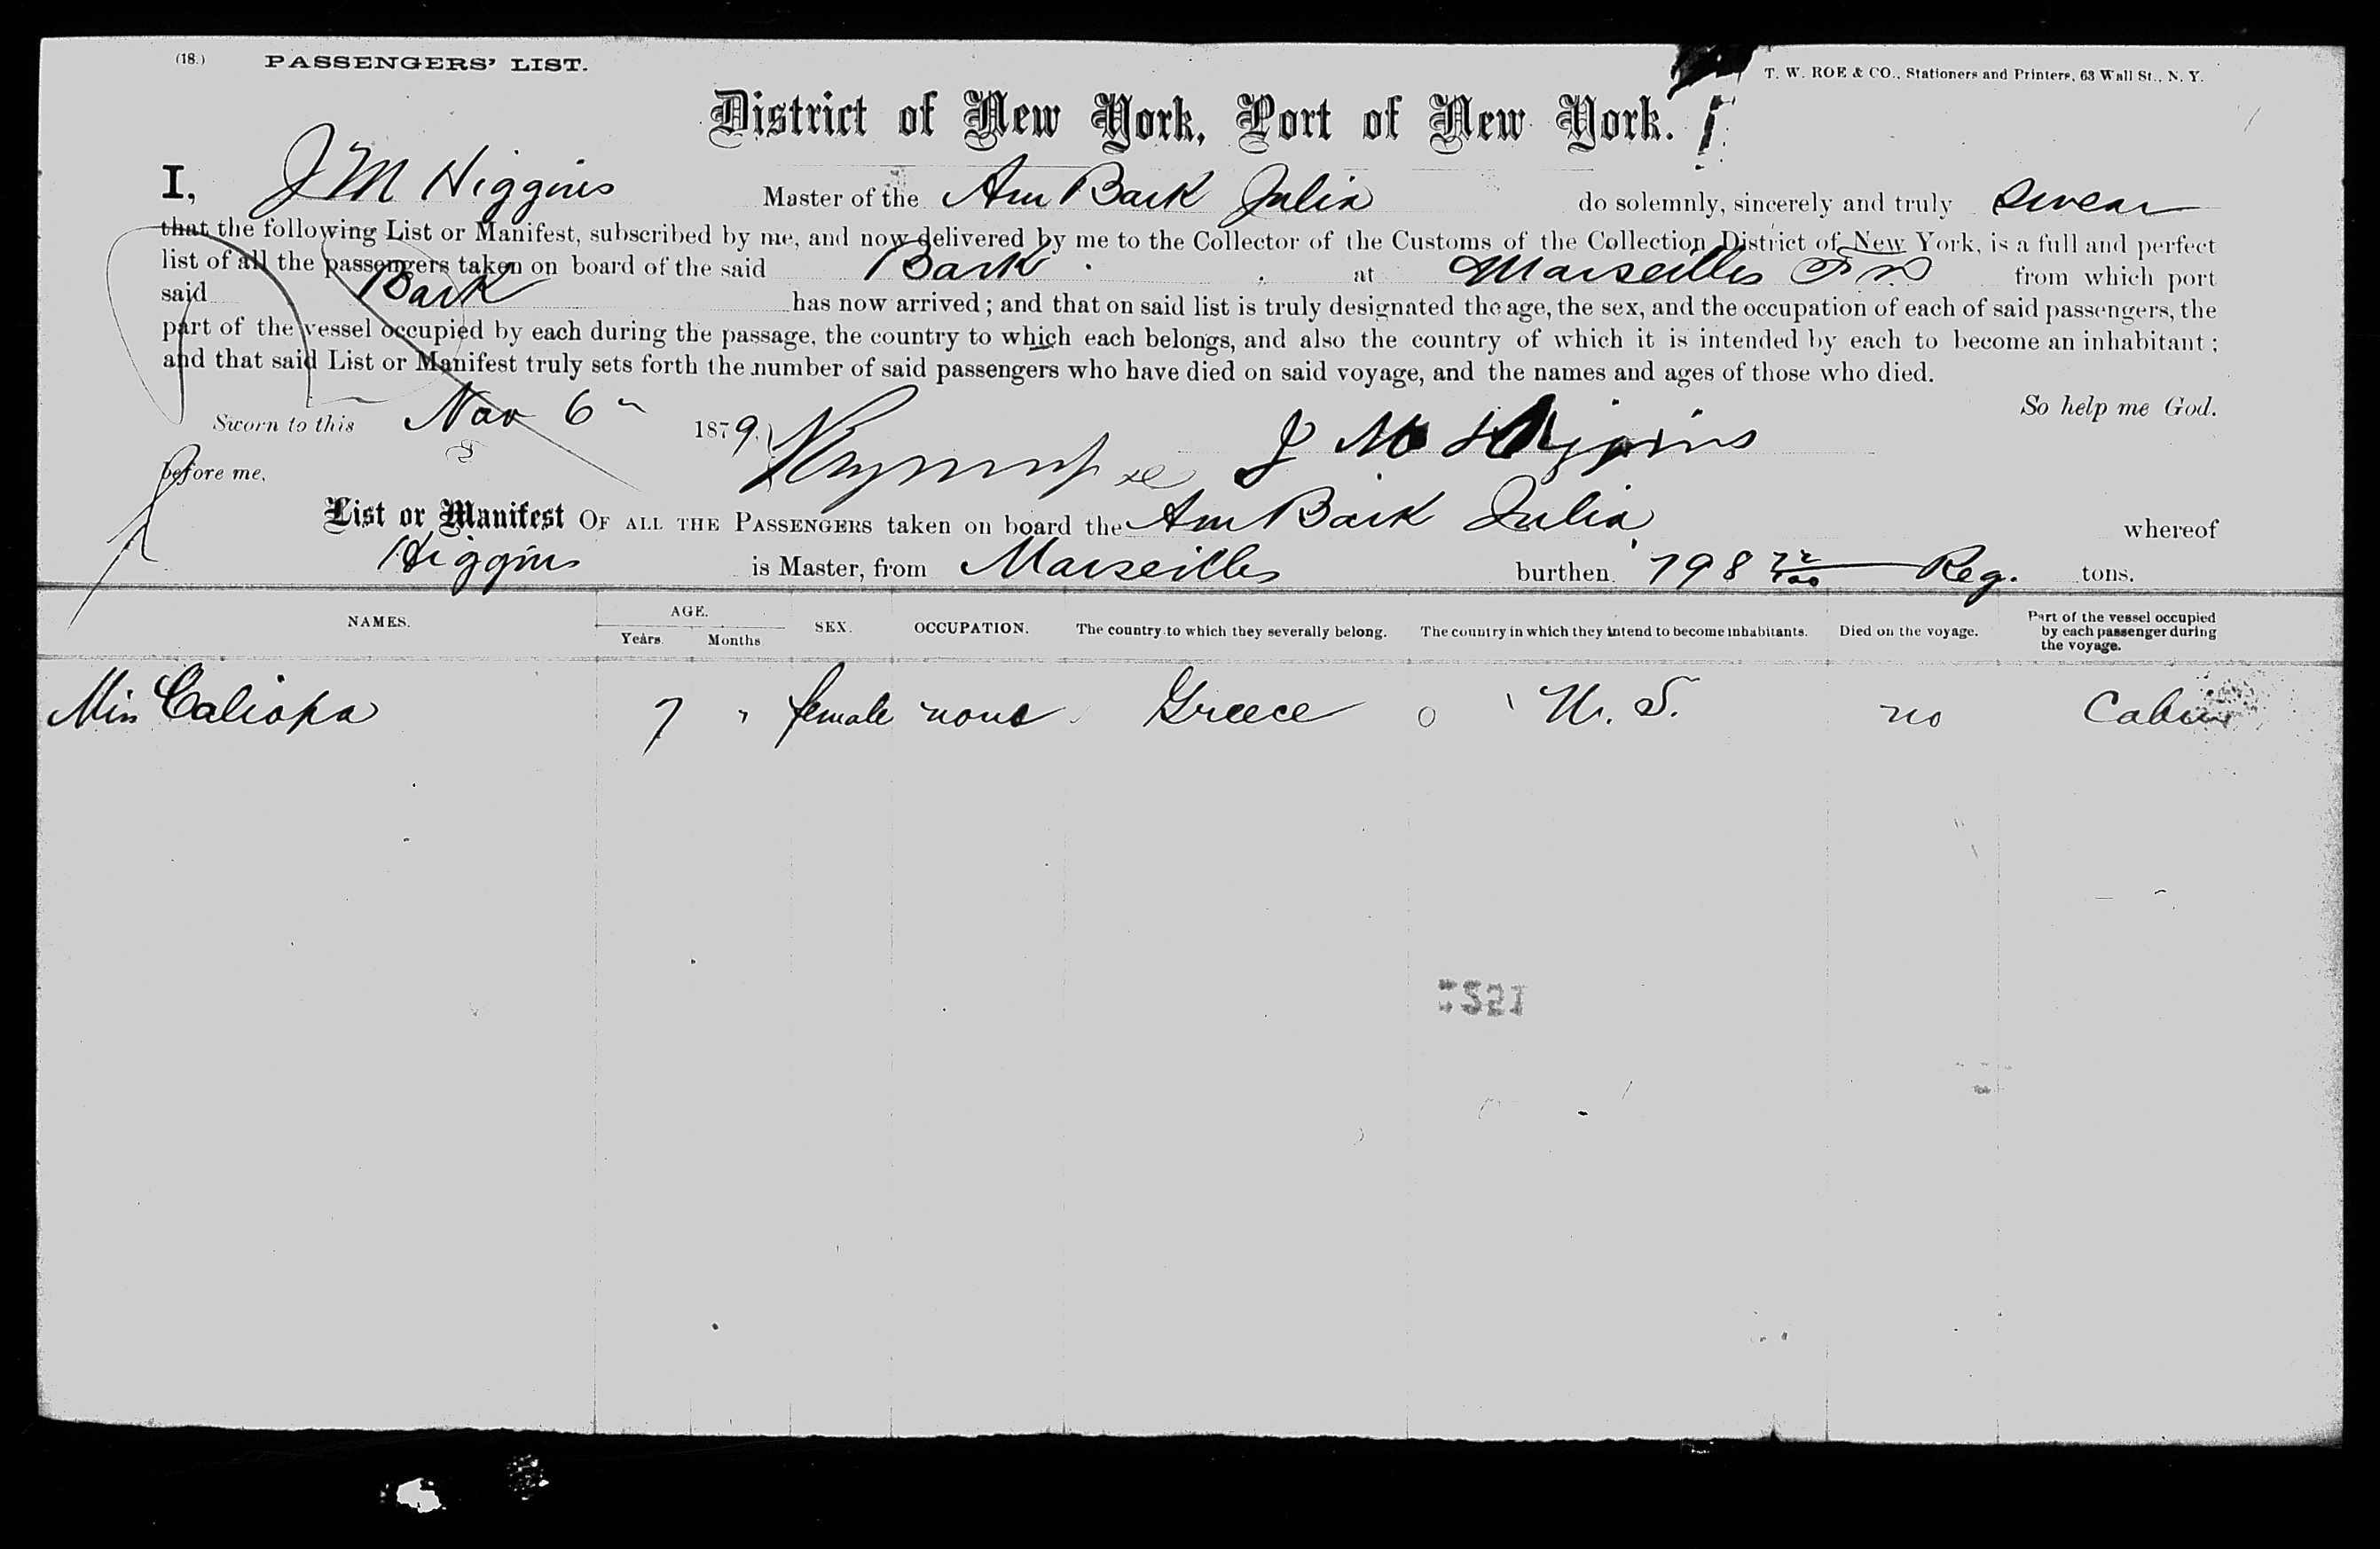 (18.) PASSENGERS' LIST. T. W. ROE & CO., Stationers and Printers, 63 Wall St., N. Y.
District of New York, Port of New York.
I, J M Higgins Master of the Am Bark Julia do solemnly, sincerely and truly swear
that the following List or Manifest, subscribed by me, and now delivered by me to the Collector of the Customs of the Collection District of New York, is a full and perfect
list of all the passengers taken on board of the said Bark at Marseilles from which port
said Bark has now arrived; and that on said list is truly designated the age, the sex, and the occupation of each of said passengers, the
part of the vessel occupied by each during the passage, the country to which each belongs, and also the country of which it is intended by each to become an inhabitant;
and that said List or Manifest truly sets forth the number of said passengers who have died on said voyage, and the names and ages of those who died.
So help me God.
Sworn to this Nov 6 1879. J M Higgins
before me,
List or Manifest OF ALL THE PASSENGERS taken on board the Am Bark Julia whereof
Higgins is Master, from Marseilles burthen 798 72/100 Reg. tons.
NAMES. AGE. Years Months SEX. OCCUPATION. The country to which they severally belong. The country in which they intend to become inhabitants. Died on the voyage. Part of the vessel occupied by each passenger during the voyage.
Miss Caliopa 7 " female none Greece U. S. no Cabin